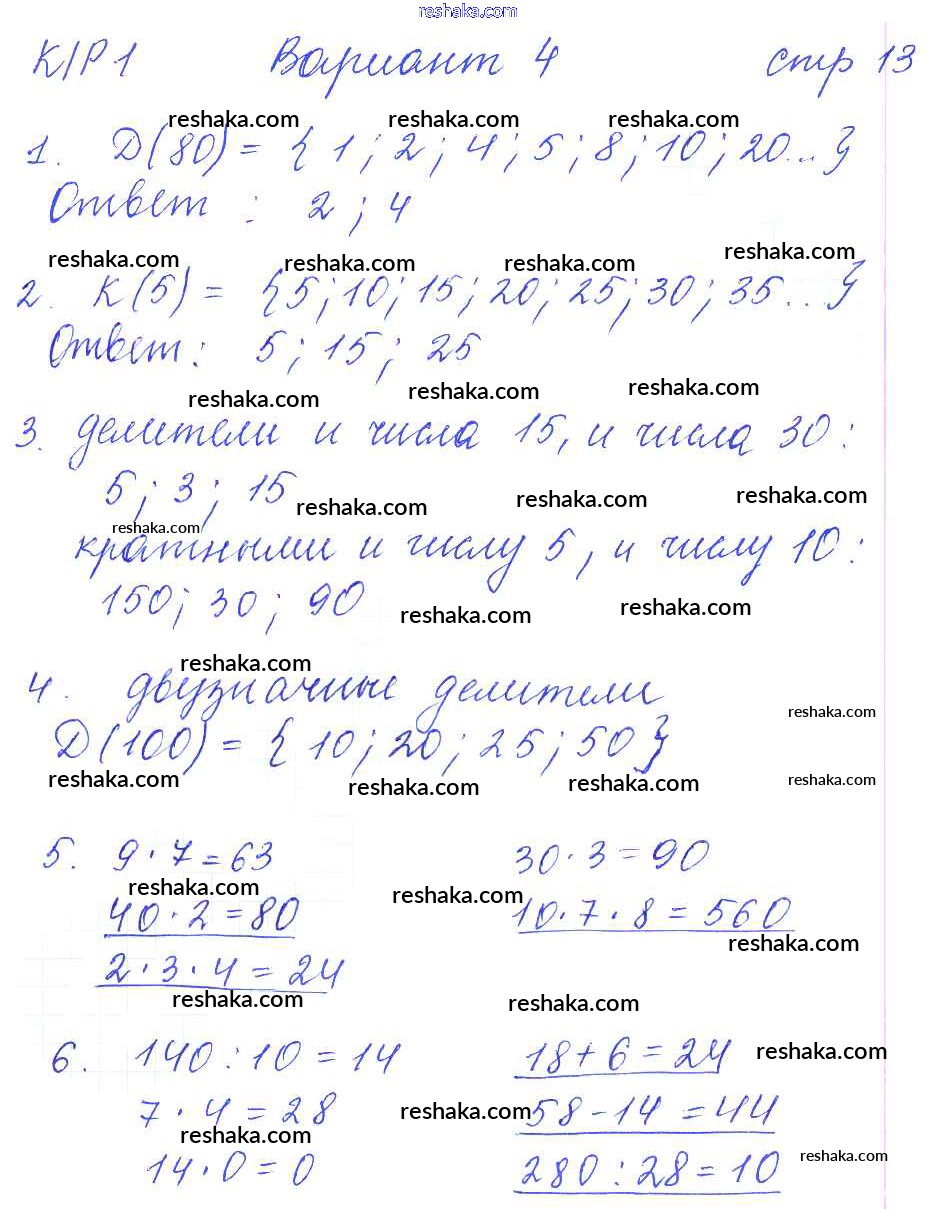 reshaka.com
К/Р 1 Вариант 4 стр 13
reshaka.com reshaka.com reshaka.com
1. D(80) = { 1 ; 2 ; 4 ; 5 ; 8 ; 10 ; 20... }
Ответ : 2 ; 4
reshaka.com reshaka.com reshaka.com reshaka.com
2. K(5) = {5 ; 10 ; 15 ; 20 ; 25 ; 30 ; 35... }
Ответ : 5 ; 15 ; 25
reshaka.com reshaka.com reshaka.com
3. делители и числа 15, и числа 30 :
5 ; 3 ; 15
reshaka.com reshaka.com reshaka.com
reshaka.com
кратными и числу 5, и числу 10 :
150 ; 30 ; 90
reshaka.com reshaka.com
reshaka.com
4. двузначные делители
reshaka.com
D(100) = { 10 ; 20 ; 25 ; 50 }
reshaka.com reshaka.com reshaka.com reshaka.com
5. 9 · 7 = 63 30 · 3 = 90
reshaka.com reshaka.com
40 · 2 = 80 10 · 7 · 8 = 560
reshaka.com
2 · 3 · 4 = 24
reshaka.com reshaka.com
6. 140 : 10 = 14 18 + 6 = 24
reshaka.com
7 · 4 = 28 58 - 14 = 44
reshaka.com
reshaka.com
14 · 0 = 0 280 : 28 = 10
reshaka.com